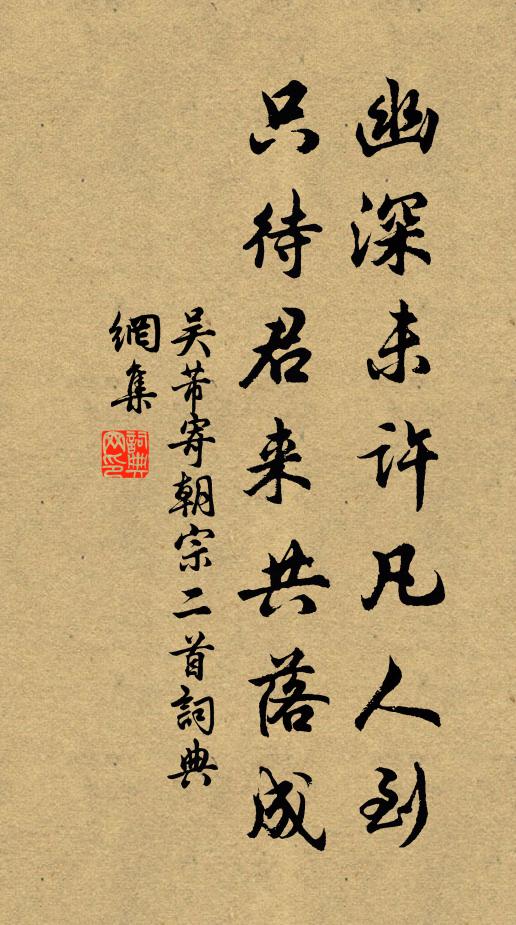 幽深未許凡人到
只待君来共落成
吴芾寄朝宗二首詞典
網集
詞典
网印